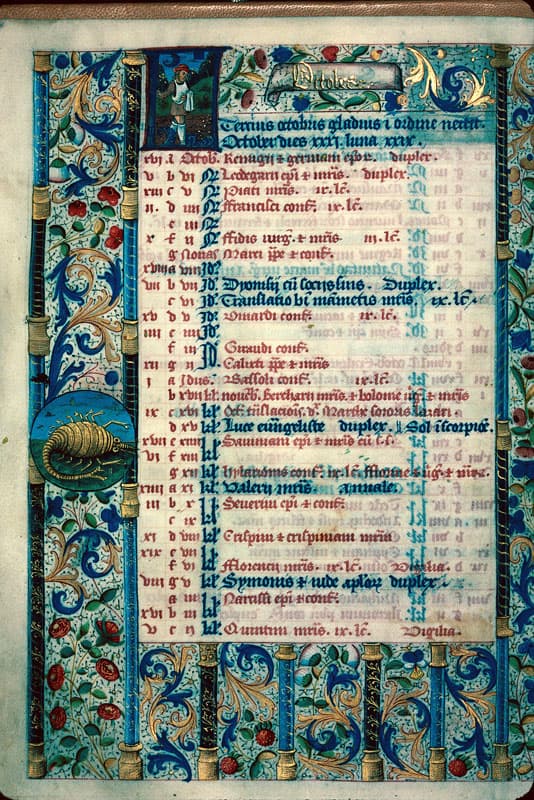 Octobes
Tercius octobris gladius i ordine nectit
October dies xxxi. luna xxix.
xvi a Octob. Remigii & germani epõr. duplex.
v b vi N Leodegarii epi & mris. duplex.
xiii c v N Piati mris. ix. lc.
ii d iiii N ffrancisci conf. ix. lc.
e iii N
x f ii N ffidis virg. & mris iii. lc.
g Nonas Marci ppe & conf.
xviii a viii Id'
vii b vii Id' Dyonisii cũ sociis suis. Duplex.
c vi Id' Translatio bi mametis mris. ix. lc.
xv d v Id' conf. ix. lc.
iiii e iiii Id'
f iii Id' Giraudi conf.
xii g ii Id' Calixti ppe & mris
i a Idus. conf. ix. lc.
b xvii kl novēb. mris. & mris
ix c xvi kl
d xv kl Luce euãgeliste duplex. Sol i scorpiõe.
xvii e xiiii kl Saviniani epi & mris cũ s. s.
vi f xiii kl
g xii kl hylarionis conf. ix. lc.
xiiii a xi kl Valerii mris. annuale.
iii b x kl Severini epi & conf.
c ix kl
xi d viii kl Crispini & crispiniani mris
xix e vii kl
f vi kl fflorencii mris. ix. lc. Vigilia.
viii g v kl Symonis & iude aplorz duplex.
a iiii kl Narcissi epi & conf.
xvi b iii kl
v c ii kl Quintini mris. ix. lc. Vigilia.